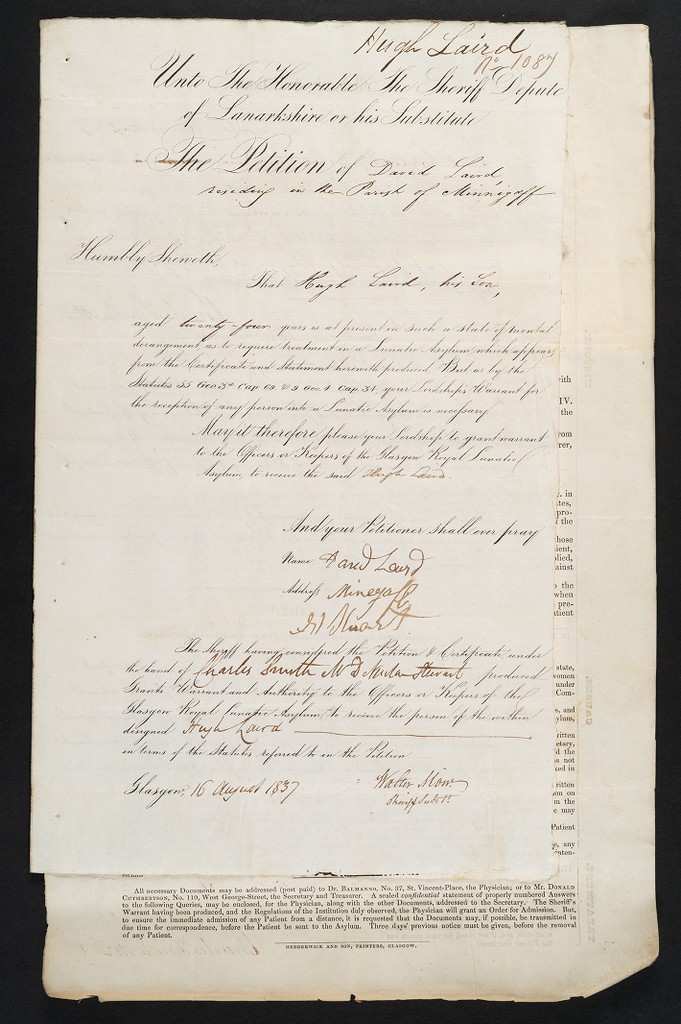 Hugh Laird
No. 1087
Unto The Honorable The Sheriff Depute
of Lanarkshire or his Substitute
The Petition of David Laird,
residing in the Parish of Minnigaff
Humbly Sheweth,
That Hugh Laird, his Son,
aged twenty-four years is at present in such a state of mental
derangement, as to require treatment in a Lunatic Asylum which appears
from the Certificate and Statement herewith produced. But as by the
Statutes 55 Geo. 3d Cap. 69 & 9 Geo. 4 Cap. 34. your Lordship's Warrant for
the reception of any person into a Lunatic Asylum is necessary
May it therefore please your Lordship to grant warrant
to the Officers or Keepers of the Glasgow Royal Lunatic
Asylum, to receive the said Hugh Laird.
And your Petitioner shall ever pray
Name David Laird
Address Minegaff
The Sheriff having considered the Petition & Certificate under
the hand of Charles Smith M D Newton Stewart produced
Grants Warrant and Authority to the Officers or Keepers of the
Glasgow Royal Lunatic Asylum to receive the person of the within
designed Hugh Laird
in terms of the Statutes referred to in the Petition
Glasgow, 16 August 1837
Walter Moir
Sheriff Subst.
with
IV.
the
rom
rer,
in
tes,
pro-
the
those
ient,
plied,
gainst
the
when
pre-
tient
state,
women
under
Com-
s, and
sylum,
ritten
etary,
d the
is not
ced in
ritten
son on
m the
e may
Patient
e, any
nten-
All necessary Documents may be addressed (post paid) to Dr. BALMANNO, No. 37, St. Vincent-Place, the Physician; or to Mr. DONALD
CUTHBERTSON, No. 110, West George-Street, the Secretary and Treasurer. A sealed confidential statement of properly numbered Answers
to the following Queries, may be enclosed, for the Physician, along with the other Documents, addressed to the Secretary. The Sheriff's
Warrant having been produced, and the Regulations of the Institution duly observed, the Physician will grant an Order for Admission. But,
to ensure the immediate admission of any Patient from a distance, it is requested that the Documents may, if possible, be transmitted in
due time for correspondence, before the Patient be sent to the Asylum. Three days' previous notice must be given, before the removal
of any Patient.
HEDDERWICK AND SON, PRINTERS, GLASGOW.